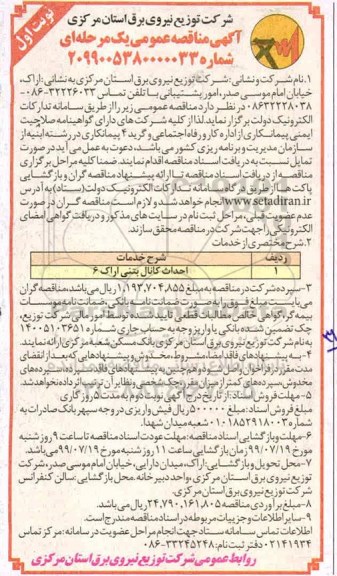 نوبت اول
شرکت توزیع نیروی برق استان مرکزی
آگهی مناقصه عمومی یک مرحله‌ای
شماره ۲۰۹۹۰۰۵۳۸۰۰۰۰۰۳۳
۱.نام شرکت و نشانی: شرکت توزیع نیروی برق استان مرکزی به نشانی: اراک،
خیابان امام موسی صدر، امور پشتیبانی با تلفن تماس ۳۲۲۲۶۰۳۳-۰۸۶
۰۸۶۳۲۲۲۸۰۳۸ در نظر دارد مناقصه عمومی زیر را از طریق سامانه تدارکات
الکترونیک دولت برگزار نماید. لذا از کلیه شرکت های دارای گواهینامه صلاحیت
ایمنی پیمانکاری از اداره کار و رفاه اجتماعی و گرید ۴ پیمانکاری در رشته ابنیه از
سازمان مدیریت و برنامه ریزی کشور می باشد، دعوت به عمل می آید در صورت
تمایل نسبت به دریافت اسناد مناقصه اقدام نمایند. ضمنا کلیه مراحل برگزاری
مناقصه از دریافت اسناد مناقصه تا ارائه پیشنهاد مناقصه گران و بازگشایی
پاکت ها از طریق درگاه سامانه تدارکات الکترونیک دولت (ستاد) به آدرس
www.setadiran.ir انجام خواهد شد و لازم است مناقصه گران در صورت
عدم عضویت قبلی، مراحل ثبت نام در سایت های مذکور و دریافت گواهی امضای
الکترونیکی را جهت شرکت در مناقصه محقق سازند.
۲.شرح مختصری از خدمات
ردیف شرح خدمات
۱ احداث کانال بتنی اراک ۶
۳-سپرده شرکت در مناقصه به مبلغ ۱,۱۹۲,۷۰۴,۸۵۵ ریال می باشد، مناقصه گران
می بایست مبلغ فوق را به صورت ضمانت نامه بانکی، ضمانت نامه موسسات
بیمه گر، گواهی خالص مطالبات قطعی تایید شده توسط امور مالی شرکت توزیع،
چک تضمین شده بانکی یا واریز وجه به حساب جاری شماره ۱۴۰۰۵۱۰۳۶۵۱
به نام شرکت توزیع نیروی برق استان مرکزی بانک مسکن شعبه مرکزی ارائه نمایند.
۴-به پیشنهادهای فاقد امضا، مشروط، مخدوش و پیشنهادهایی که بعد از انقضای
مدت مقرر در فراخوان واصل شود و هم چنین به پیشنهادهای فاقد سپرده، سپرده های
مخدوش، سپرده های کمتر از میزان مقرر، چک شخصی و نظایر آن ترتیب اثر داده نخواهد شد.
۵-مهلت فروش اسناد: از تاریخ درج آگهی نوبت دوم به مدت ۵ روز کاری
مبلغ فروش اسناد: مبلغ ۵۰۰۰۰۰ ریال فیش واریزی در وجه سپهر بانک صادرات به
شماره ۰۱۰۱۸۵۲۹۱۸۰۰۳ شعبه میدان شهدا.
۶-مهلت و بازگشایی اسناد مناقصه: مهلت عودت اسناد مناقصه تا ساعت ۹ روز شنبه
مورخ ۹۹/۰۷/۱۹ زمان بازگشایی ساعت ۱۱ روز شنبه مورخ ۹۹/۰۷/۱۹ می باشد.
۷-محل تحویل و بازگشایی: اراک، میدان دارایی، خیابان امام موسی صدر، شرکت
توزیع نیروی برق استان مرکزی، واحد دبیرخانه. محل بازگشایی: سالن کنفرانس
شرکت توزیع نیروی برق استان مرکزی.
۸-مبلغ برآوردی مناقصه ۲۴,۷۹۰,۱۶۱,۸۰۵ ریال می باشد.
۹-سایر اطلاعات و جزییات مربوطه در اسناد مناقصه مندرج است.
اطلاعات تماس سامانه ستاد جهت انجام مراحل عضویت در سامانه: مرکز تماس
۰۲۱۴۱۹۳۴ دفتر ثبت نام: ۳۳۲۴۵۲۴۸-۰۸۶
روابط عمومی شرکت توزیع نیروی برق استان مرکزی